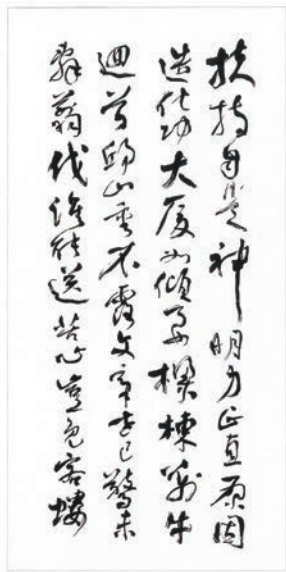 扶持自是神明力正直原因
造化功大厦如傾要樑棟萬牛
迴首邱山重不露文章世已驚未
辭翦伐誰能送苦心豈免容螻